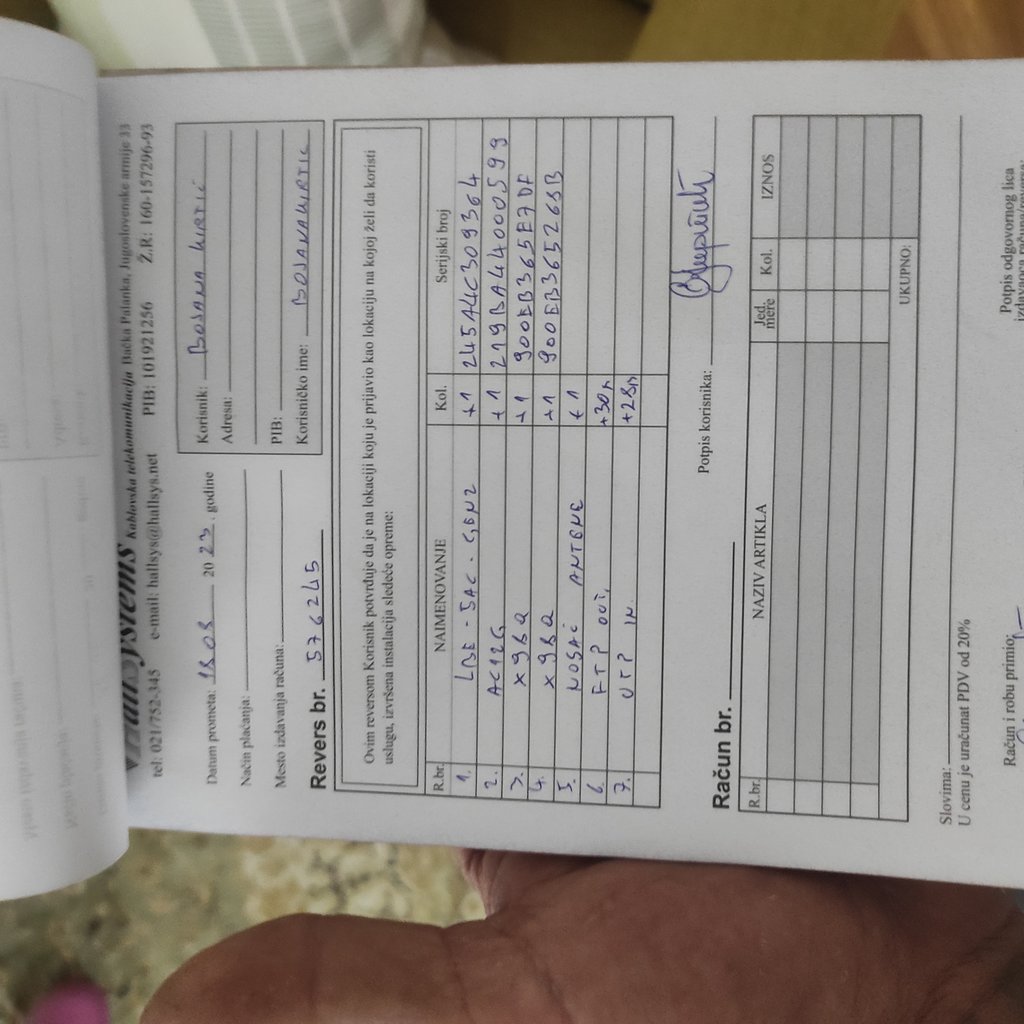 HallSystems Kablovska telekomunikacija Bačka Palanka, Jugoslovenske armije 33
tel: 021/752-345 e-mail: hallsys@hallsys.net PIB: 101921256 Ž.R: 160-157296-93
Datum prometa: 18 08 20 23. godine
Način plaćanja:
Mesto izdavanja računa:
Revers br. 576245
Korisnik: BOJANA KIRTIĆ
Adresa:
PIB:
Korisničko ime: BOJANAKIRTIC
Ovim reversom Korisnik potvrđuje da je na lokaciji koju je prijavio kao lokaciju na kojoj želi da koristi
uslugu, izvršena instalacija sledeće opreme:
R.br. NAIMENOVANJE Kol. Serijski broj
1. LBE-5AC-GEN2 +1 245A4C309364
2. AC12G +1 219BA44000599
3. X98Q +1 900EB365E7DF
4. X98Q +1 900EB365265B
5. NOSAČ ANTENE +1
6. FTP OUT, +30m
7. UTP IN +28m
Potpis korisnika:
Račun br.
R.br. NAZIV ARTIKLA Jed. mere Kol. IZNOS
UKUPNO:
Slovima:
U cenu je uračunat PDV od 20%
Račun i robu primio:
Potpis odgovornog lica